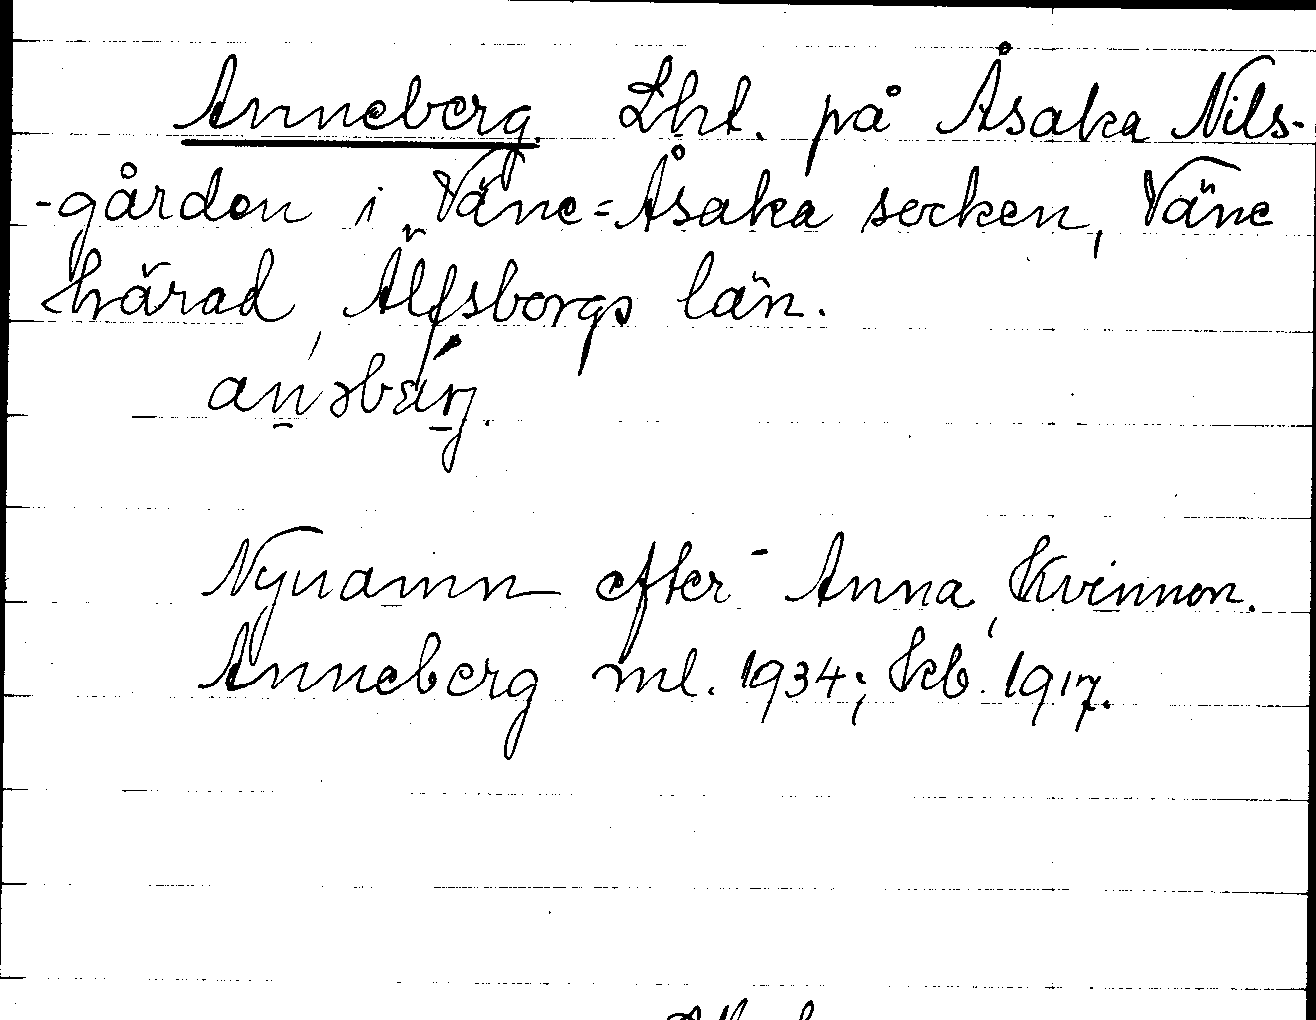 Anneberg. Lht. på Åsaka Nils-
-gården i Väne=Åsaka socken, Väne
härad, Älfsborgs län.
Nynamn efter Anna, Kvinnon.
Anneberg ml. 1934; Jeb. 1917.